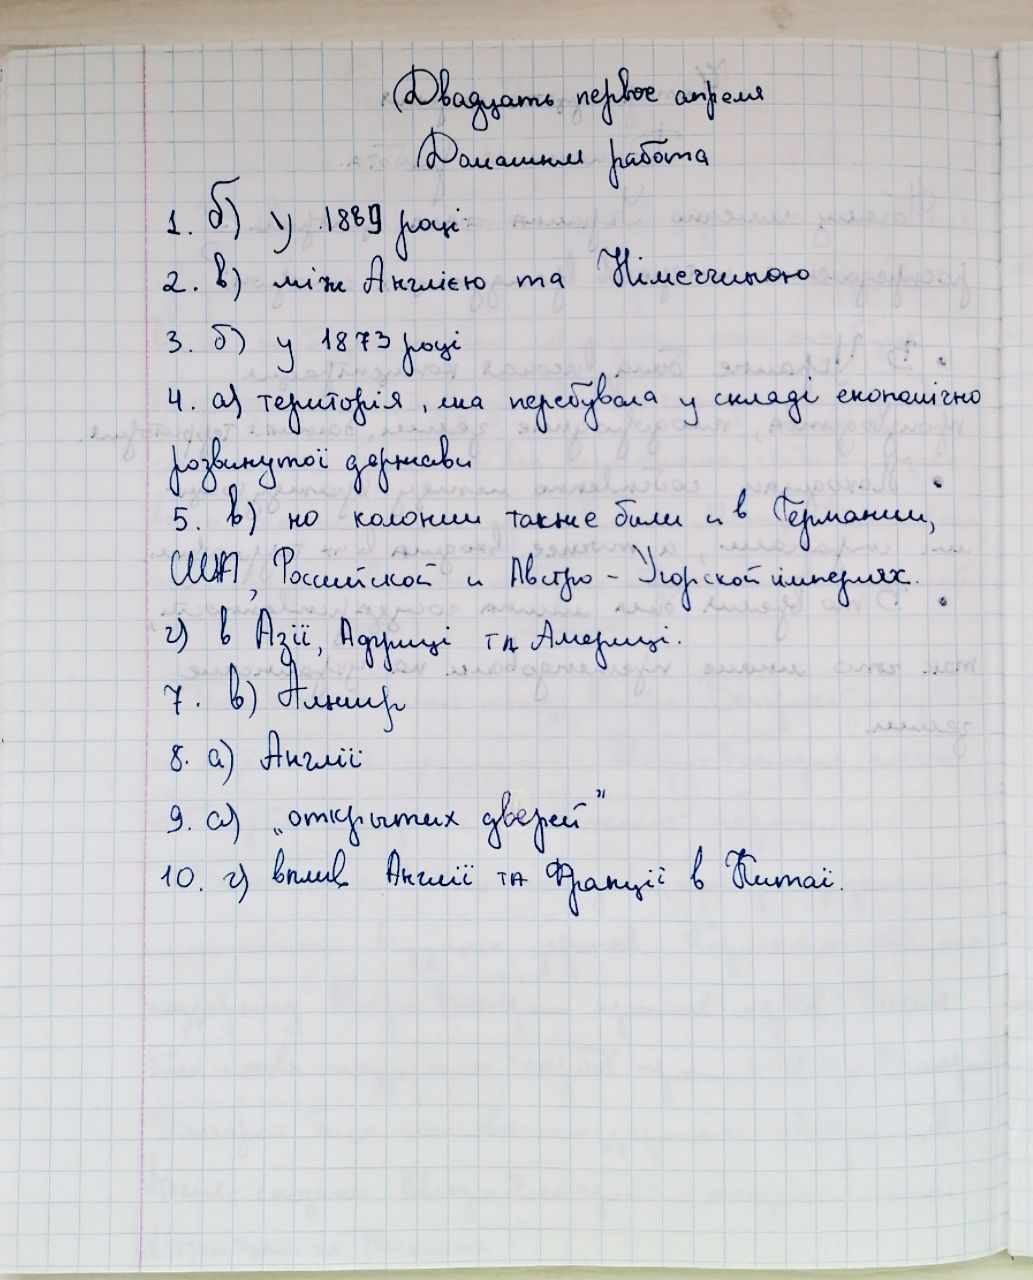 Двадцать первое апреля
Домашняя работа
1. б) у 1889 році
2. в) між Англією та Німеччиною
3. б) у 1873 році
4. а) територія, яка перебувала у складі економічно
розвинутої держави
5. в) но колонии также били и в Германии,
США, Российской и Австро-Угорской імпериях.
г) в Азії, Африці та Америці.
7. в) Алжир
8. а) Англії
9. а) „открытих дверей"
10. г) вплив Англії та Франції в Китаї.